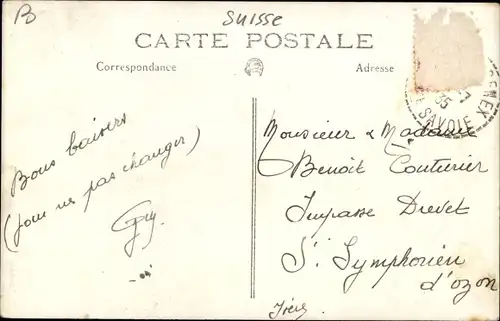 B
Suisse
CARTE POSTALE
Correspondance
Adresse
35
SAVOIE
Bons baisers
(pour ne pas changer)
Monsieur & Madame
Benoit Couturier
Impasse Drevet
St. Symphorien
d'ozon
Isère